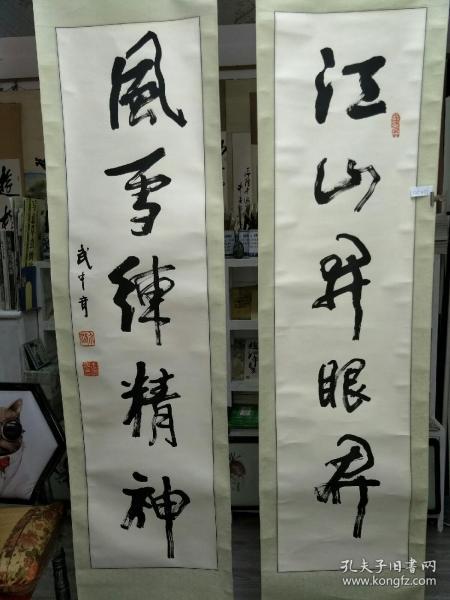 江山开眼界
风雪練精神
武中奇
孔夫子旧书网
www.kongfz.com